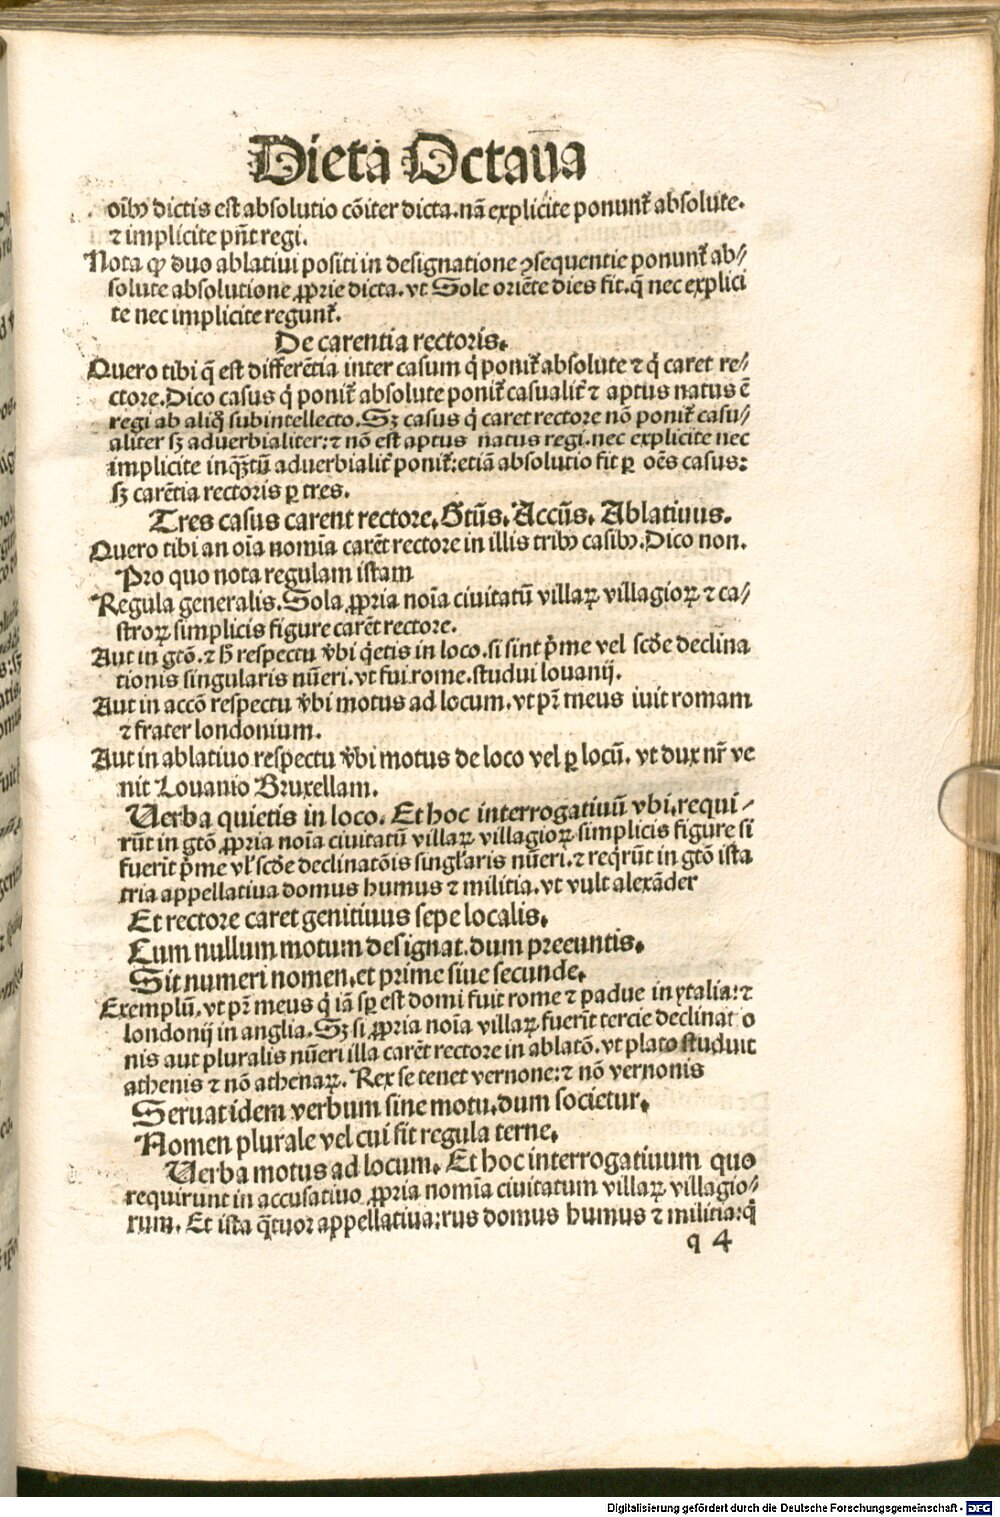 Dieta Octaua
oīb⁊ dictis est absolutio cōiter dicta. nā explicite ponunt᷑ absolute.
⁊ implicite pn̄t regi.
Nota ꝙ duo ablatiui positi in designatione ↄsequentie ponunt᷑ ab⸗
solute absolutione ꝓprie dicta. vt Sole oriēte dies fit. q̄ nec explici
te nec implicite regunt᷑.
De carentia rectoris.
Quero tibi q̄ est differētia inter casum q̇ ponit᷑ absolute ⁊ q̇ caret re⸗
ctore. Dico casus q̇ ponit᷑ absolute ponit᷑ casualit᷑ ⁊ aptus natus ē
regi ab aliq̊ subintellecto. Sꝫ casus q̇ caret rectore nō ponit᷑ casu⸗
aliter sꝫ aduerbialiter: ⁊ nō est aptus natus regi. nec explicite nec
implicite inq̄ꝫtū aduerbialit᷑ ponit᷑: etiā absolutio fit ꝑ oēs casus:
sꝫ carētia rectoris ꝑ tres.
Tres casus carent rectore. Gtūs. Accūs. Ablatiuus.
Quero tibi an oīa nomīa carēt rectore in illis trib⁊ casib⁊. Dico non.
Pro quo nota regulam istam
Regula generalis. Sola ꝓpria noīa ciuitatū villaꝝ villagioꝝ ⁊ ca⸗
stroꝝ simplicis figure carēt rectore.
Aut in gtō. ⁊ h̄ respectu v̄bi q̇etis in loco. si sint p̄me vel scd̄e declina
tionis singularis nūeri. vt fui rome. studui louanij.
Aut in accō respectu v̄bi motus ad locum. vt pr̄ meus iuit romam
⁊ frater londonium.
Aut in ablatiuo respectu v̄bi motus de loco vel ꝑ locū. vt dux nr̄ ve
nit Louanio Bruxellam.
Uerba quietis in loco. Et hoc interrogatiuū vbi. requi⸗
rūt in gtō ꝓpria noīa ciuitatū villaꝝ villagioꝝ simplicis figure si
fuerīt p̄me vl̓ scd̄e declinatōis singl̓aris nūeri. ⁊ req̇rūt in gtō ista
tria appellatiua domus humus ⁊ militia. vt vult alexāder
Et rectore caret genitiuus sepe localis.
Cum nullum motum designat. dum preeuntis.
Sit numeri nomen. et prime siue secunde.
Exemplū. vt pr̄ meus q̇ iā sꝑ est domi fuit rome ⁊ padue in ytalia: ⁊
londonij in anglia. Sꝫ si ꝓpria noīa villaꝝ fuerīt tercie declinat o
nis aut pluralis nūeri illa carēt rectore in ablatō. vt plato studuit
athenis ⁊ nō athenaꝝ. Rex se tenet vernone: ⁊ nō vernonis
Seruat idem verbum sine motu. dum societur.
Nomen plurale vel cui sit regula terne.
Uerba motus ad locum. Et hoc interrogatiuum quo
requirunt in accusatiuo ꝓpria nomīa ciuitatum villaꝝ villagio⸗
rum. Et ista q̄tuor appellatiua: rus domus humus ⁊ militia: q̇
q 4
Digitalisierung gefördert durch die Deutsche Forschungsgemeinschaft - DFG